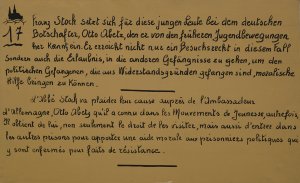 17
Franz Stock setzt sich für diese jungen Leute bei dem deutschen
Botschafter, Otto Abetz, den er von den früheren Jugendbewegungen
her kennt, ein. Er erreicht nicht nur ein Besuchsrecht in diesem Fall
sondern auch die Erlaubnis, in die anderen Gefängnisse zu gehen, um den
politischen Gefangenen, die aus Widerstandsgründen gefangen sind, moralische
Hilfe bringen zu können.
L'Abbé Stock va plaider leur cause auprès de l'Ambassadeur
d'Allemagne, Otto Abetz qu'il a connu dans les Mouvements de Jeunesse, autrefois.
Il obtient de lui, non seulement le droit de les visiter, mais aussi d'entrer dans
les autres prisons pour apporter une aide morale aux prisonniers politiques qui
y sont enfermés pour faits de résistance.